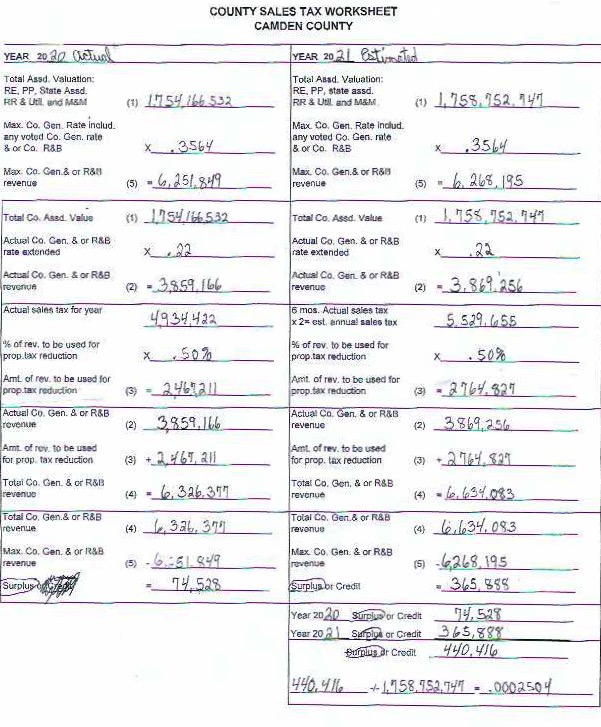 COUNTY SALES TAX WORKSHEET
CAMDEN COUNTY
YEAR 2020 Actual
Total Assd. Valuation:
RE, PP, State Assd.
RR & Util. and M&M (1) 1,754,166,532
Max. Co. Gen. Rate includ.
any voted Co. Gen. rate
& or Co. R&B X .3564
Max. Co. Gen.& or R&B
revenue (5) = 6,251,849
Total Co. Assd. Value (1) 1,754,166,532
Actual Co. Gen. & or R&B
rate extended X .22
Actual Co. Gen. & or R&B
revenue (2) = 3,859,166
Actual sales tax for year
4,934,422
% of rev. to be used for
prop.tax reduction X .50%
Amt. of rev. to be used for
prop.tax reduction (3) = 2,467,211
Actual Co. Gen. & or R&B
revenue (2) 3,859,166
Amt. of rev. to be used
for prop. tax reduction (3) + 2,467,211
Total Co. Gen. & or R&B
revenue (4) = 6,326,377
Total Co. Gen.& or R&B
revenue (4) 6,326,377
Max. Co. Gen. & or R&B
revenue (5) - 6,251,849
Surplus or = 74,528
YEAR 2021 Estimated
Total Assd. Valuation:
RE, PP, state assd.
RR & Util. and M&M (1) 1,758,752,747
Max. Co. Gen. Rate includ.
any voted Co. Gen. rate
& or Co. R&B X .3564
Max. Co. Gen.& or R&B
revenue (5) = 6,268,195
Total Co. Assd. Value (1) 1,758,752,747
Actual Co. Gen. & or R&B
rate extended X .22
Actual Co. Gen. & or R&B
revenue (2) = 3,869,256
6 mos. Actual sales tax
x 2= est. annual sales tax 5,529,655
% of rev. to be used for
prop.tax reduction X .50%
Amt. of rev. to be used for
prop.tax reduction (3) = 2764,827
Actual Co. Gen. & or R&B
revenue (2) 3869,256
Amt. of rev. to be used
for prop. tax reduction (3) + 2764,827
Total Co. Gen. & or R&B
revenue (4) = 6,634,083
Total Co. Gen.& or R&B
revenue (4) 6,634,083
Max. Co. Gen. & or R&B
revenue (5) - 6,268,195
Surplus or Credit = 365,888
Year 2020 Surplus or Credit 74,528
Year 2021 Surplus or Credit 365,888
Surplus or Credit 440,416
440,416 ÷ 1,758,752,747 = .0002504